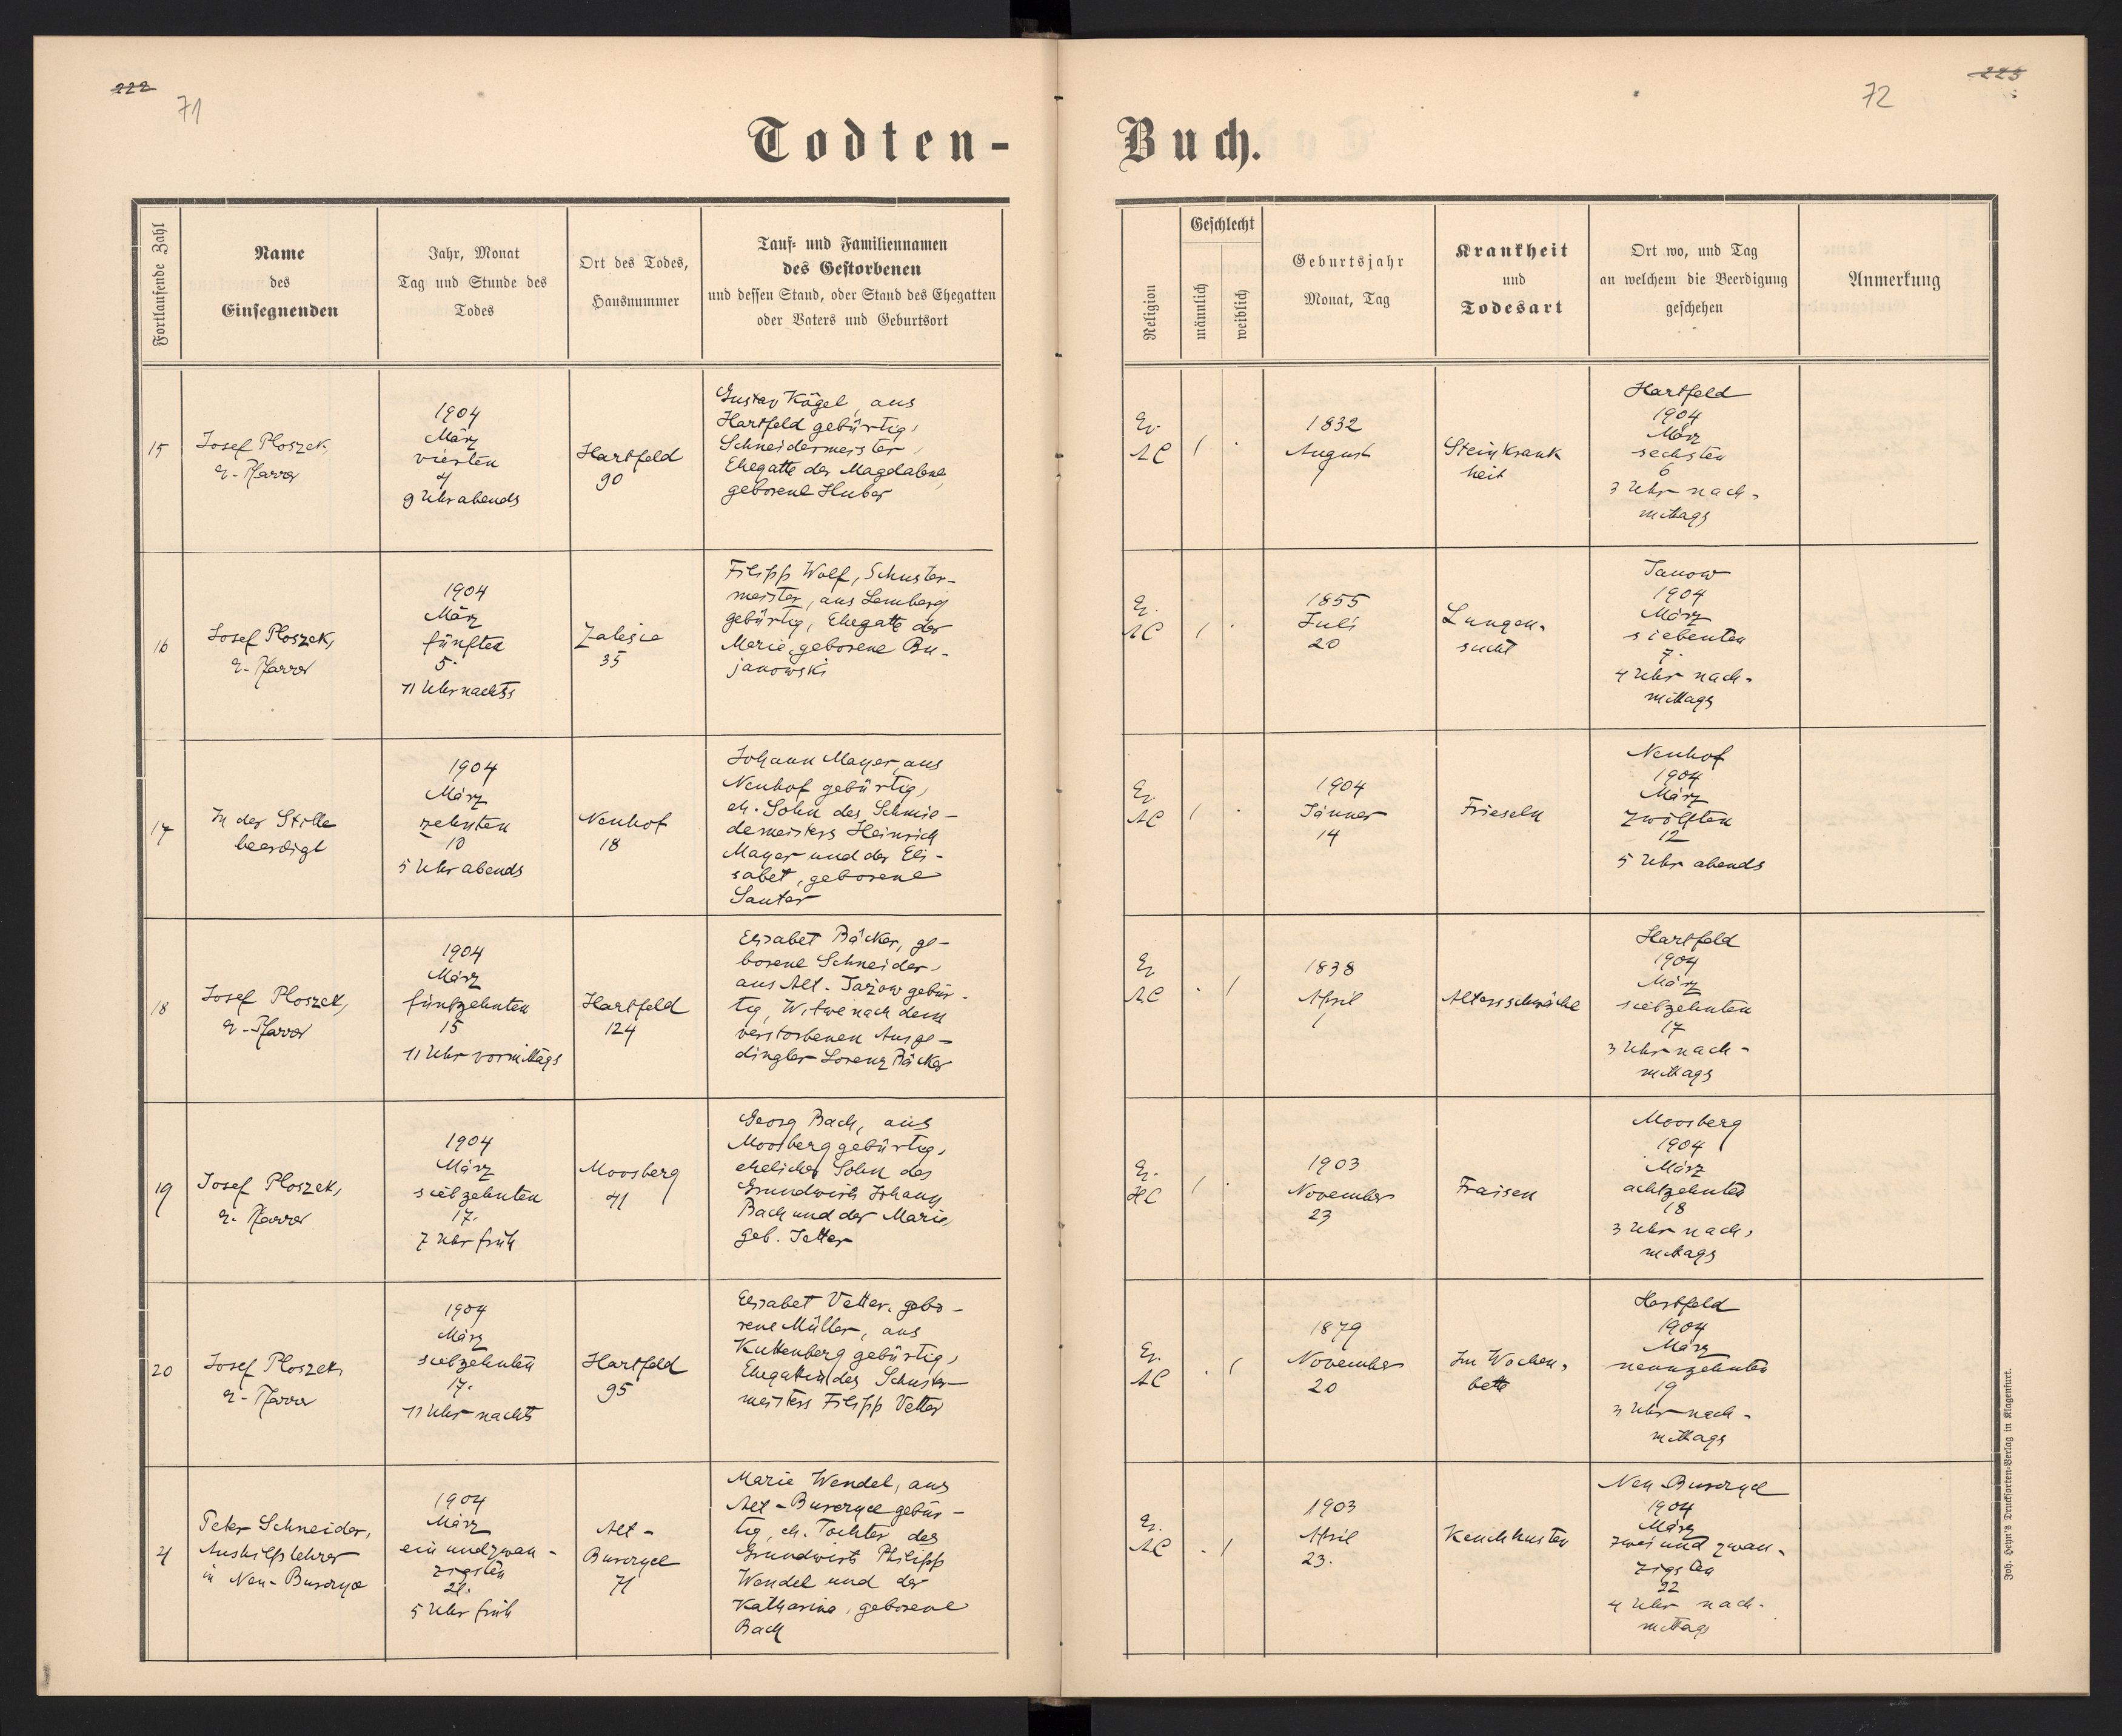 222
71
Todten-
Fortlaufende Zahl
Name
des
Einsegnenden
Jahr, Monat
Tag und Stunde des
Todes
Ort des Todes,
Hausnummer
Tauf= und Familiennamen
des Gestorbenen
und dessen Stand, oder Stand des Ehegatten
oder Vaters und Geburtsort
15
Josef Ploszek,
e. Pfarrer
1904
März
vierten
4
9 Uhr abends
Hartfeld
90
Gustav Kögel, aus
Hartfeld gebürtig,
Schneidermeister,
Ehegatte der Magdalena,
geborene Huber
16
Josef Ploszek,
e. Pfarrer
1904
März
fünften
5.
11 Uhr nachts
Zalesie
35
Filipp Wolf, Schuster-
meister, aus Lemberg
gebürtig, Ehegatte der
Marie, geborene Bu-
janowski
17
In der Stille
beerdigt
1904
März
zehnten
10
5 Uhr abends
Neuhof
18
Johann Mayer, aus
Neuhof gebürtig,
eh. Sohn des Schmie-
demeisters Heinrich
Mayer und der Eli-
sabet, geborene
Sauter
18
Josef Ploszek,
e. Pfarrer
1904
März
fünfzehnten
15
11 Uhr vormittags
Hartfeld
124
Elisabet Bäcker, ge-
borene Schneider,
aus Alt-Jazow gebür-
tig, Witwe nach dem
verstorbenen Ausge-
dingler Lorenz Bäcker
19
Josef Ploszek,
e. Pfarrer
1904
März
siebzehnten
17.
7 Uhr früh
Moosberg
41
Georg Bach, aus
Moosberg gebürtig,
ehelicher Sohn des
Grundwirts Johann
Bach und der Marie,
geb. Jetter
20
Josef Ploszek,
e. Pfarrer
1904
März
siebzehnten
17.
11 Uhr nachts
Hartfeld
95
Elisabet Vetter, gebo-
rene Müller, aus
Kuttenberg gebürtig,
Ehegattin des Schuster-
meisters Filipp Vetter
Peter Schneider,
Aushilfslehrer
in Neu-Burczyce
1904
März
ein und zwan-
zigsten
21.
5 Uhr früh
Alt-
Burczyce
71
Marie Wendel, aus
Alt-Burczyce gebür-
tig, eh. Tochter des
Grundwirts Philipp
Wendel und der
Katharina, geborene
Bach
223
72
Buch.
Religion
Geschlecht
männlich
weiblich
Geburtsjahr
Monat, Tag
Krankheit
und
Todesart
Ort wo, und Tag
an welchem die Beerdigung
geschehen
Anmerkung
Ev.
AC
1832
August
Steinkrank
heit
Hartfeld
1904
März
sechsten
6
3 Uhr nach-
mittags
Ev.
AC
1855
Juli
20
Lungen-
sucht
Janow
1904
März
siebenten
7.
4 Uhr nach-
mittags
Ev.
AC
1904
Jänner
14
Frieseln
Neuhof
1904
März
zwölften
12
5 Uhr abends
Ev.
AC
1838
April
Altersschwäche
Hartfeld
1904
März
siebzehnten
17
3 Uhr nach-
mittags
Ev.
HC
1903
November
23
Fraisen
Moosberg
1904
März
achtzehnten
18
3 Uhr nach-
mittags
Ev.
AC
1879
November
20
Im Wochen-
bette
Hartfeld
1904
März
neunzehnten
19
3 Uhr nach-
mittags
Ev.
AC
1903
April
23.
Keuchhusten
Neu-Burczyce
1904
März
zwei und zwan-
zigsten
22
4 Uhr nach-
mittags
Joh. Heyn's Drucksorten-Verlag in Klagenfurt.